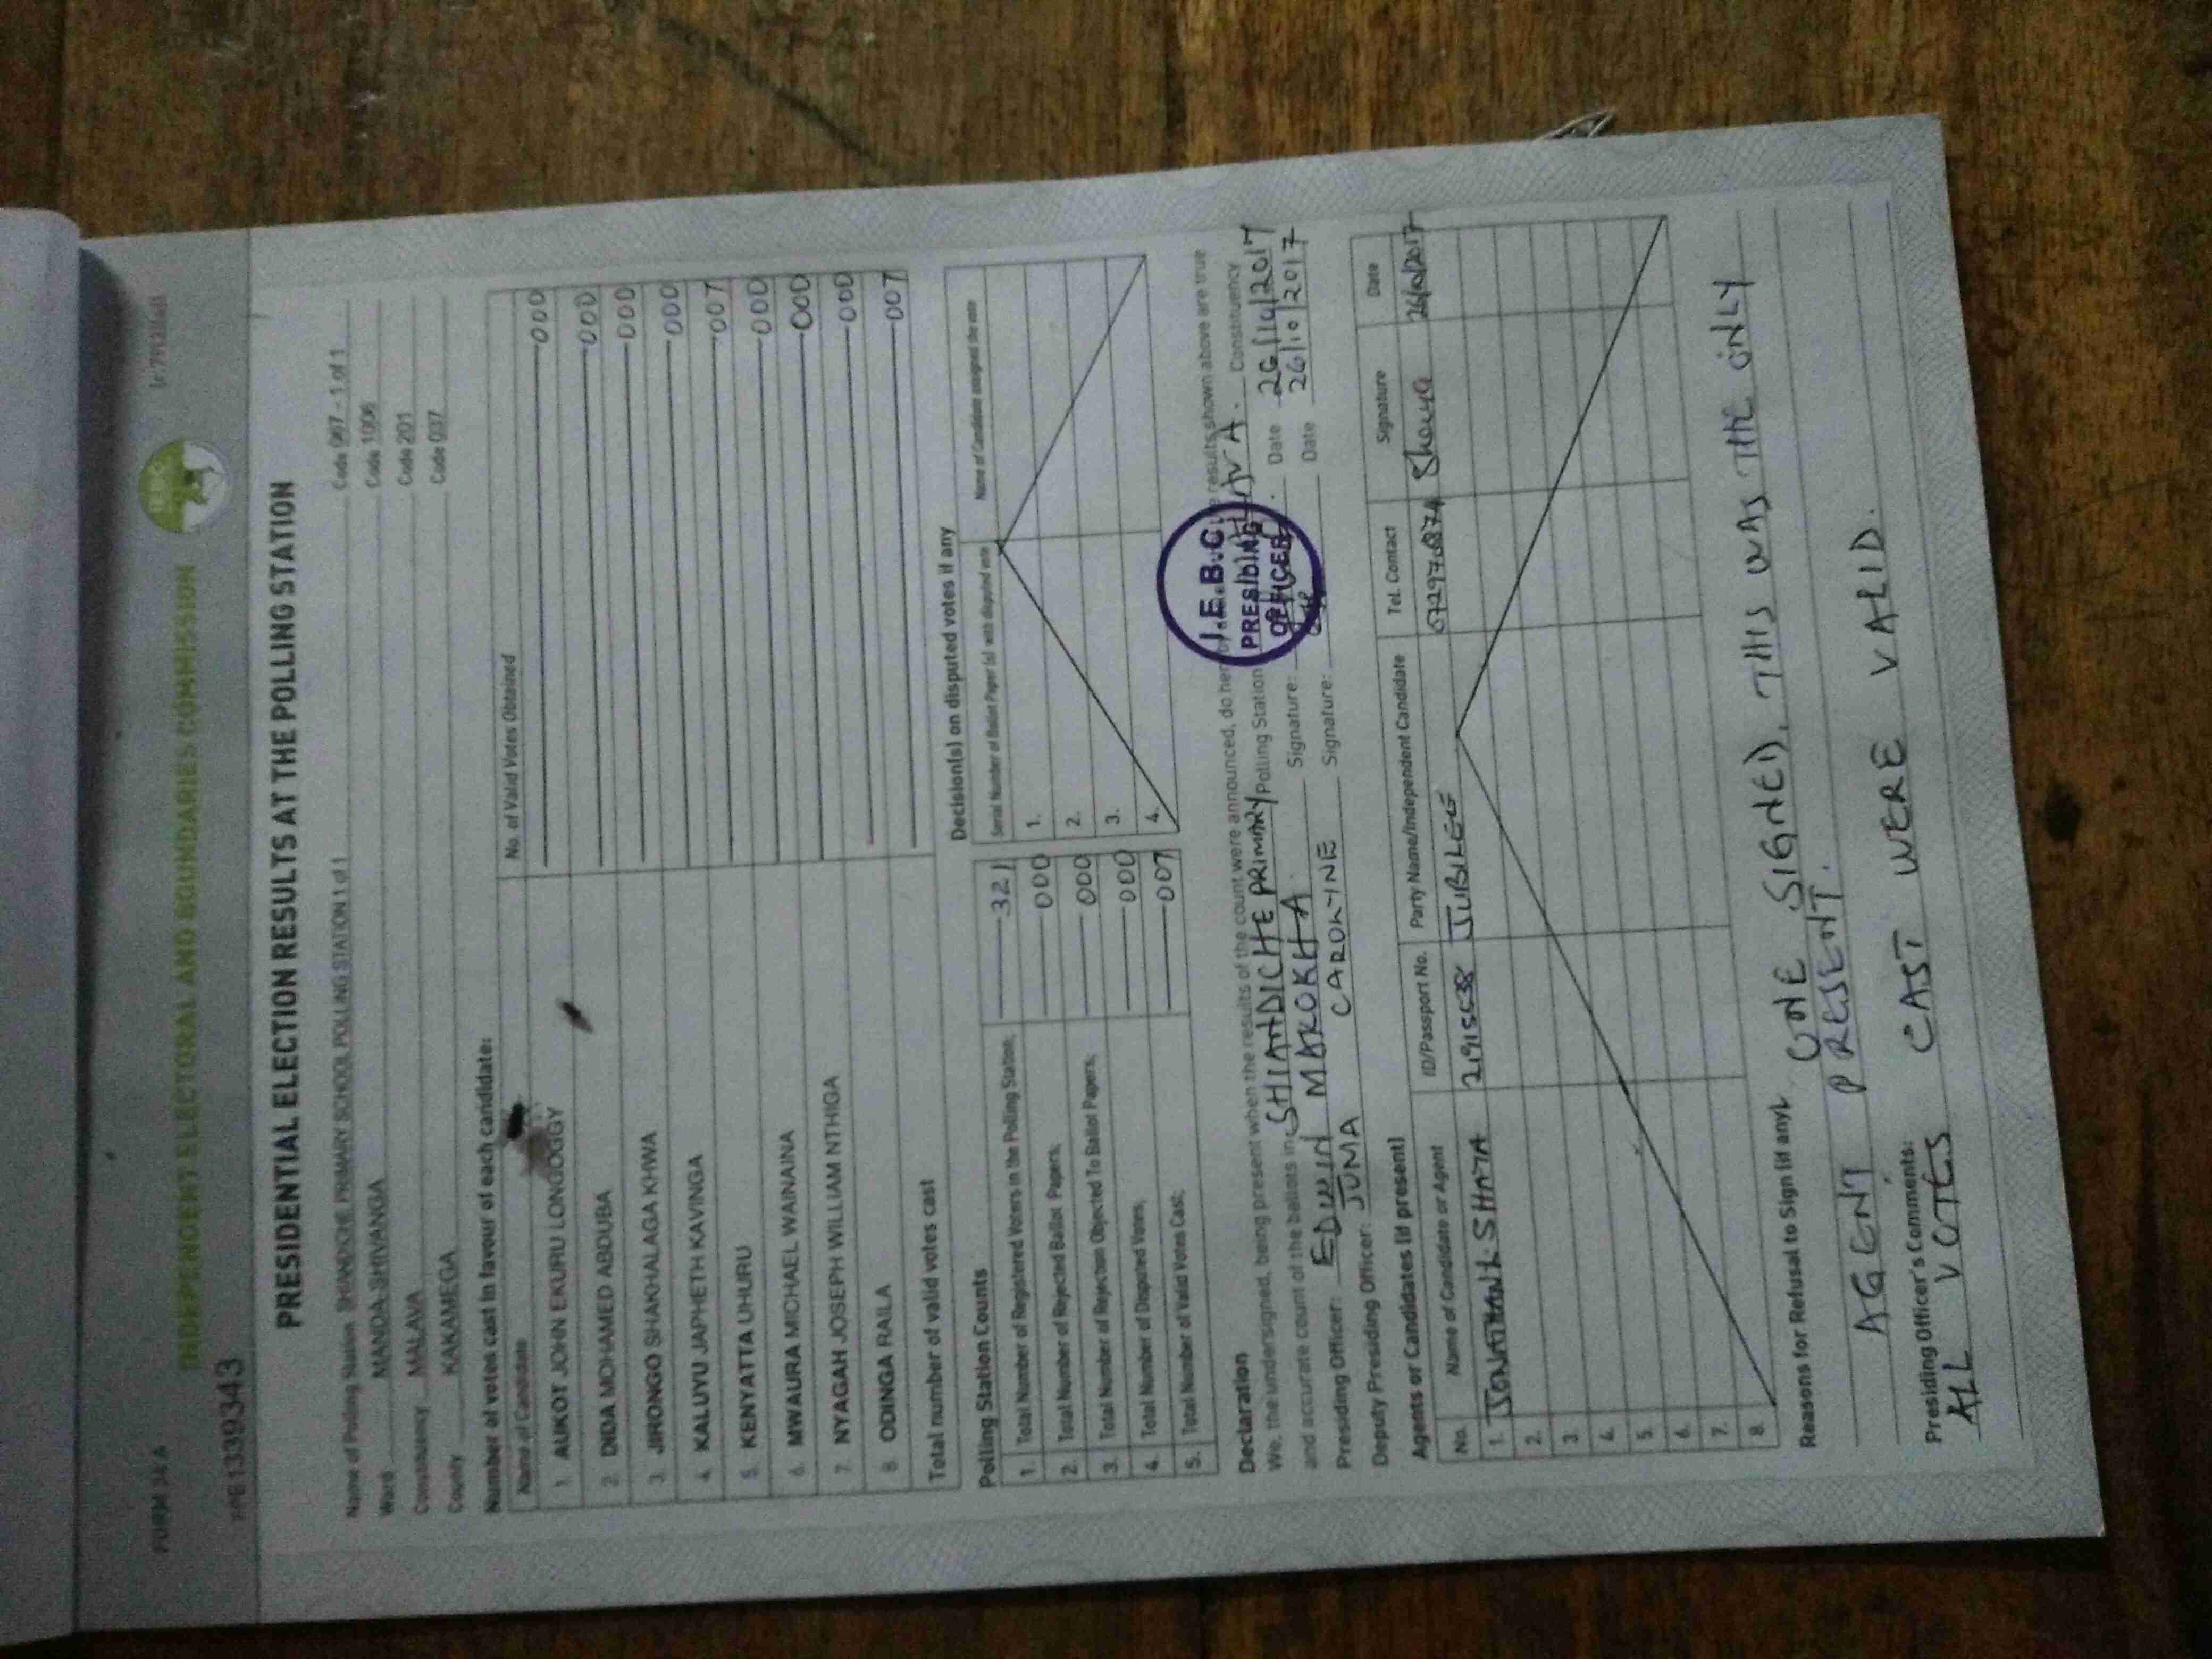 FORM 34 A
INDEPENDENT ELECTORAL AND BOUNDARIES COMMISSION
IEBC
PRESIDENTIAL ELECTION RESULTS AT THE POLLING STATION
Name of Polling Station SHIANDICHE PRIMARY SCHOOL POLLING STATION 1 of 1 Code 067 - 1 of 1
Ward MANDA-SHIVANGA Code 1006
Constituency MALAVA Code 201
County KAKAMEGA Code 037
Number of votes cast in favour of each candidate:
Name of Candidate No. of Valid Votes Obtained
1. AUKOT JOHN EKURU LONGOGGY 000
2. DIDA MOHAMED ABDUBA 000
3. JIRONGO SHAKHALAGA KHWA 000
4. KALUYU JAPHETH KAVINGA 000
5. KENYATTA UHURU 007
6. MWAURA MICHAEL WAINAINA 000
7. NYAGAH JOSEPH WILLIAM NTHIGA 000
8. ODINGA RAILA 000
Total number of valid votes cast 007
Polling Station Counts
1. Total Number of Registered Voters in the Polling Station; 321
2. Total Number of Rejected Ballot Papers; 000
3. Total Number of Rejection Objected To Ballot Papers; 000
4. Total Number of Disputed Votes; 000
5. Total Number of Valid Votes Cast; 007
Decision(s) on disputed votes if any
Serial Number of Ballot Paper (s) with disputed vote Name of Candidate assigned the vote
1.
2.
3.
4.
Declaration
We, the undersigned, being present when the results of the count were announced, do results shown above are true
and accurate count of the ballots in SHIANDICHE PRIMARY Polling Station Constituency
Presiding Officer: EDWIN MAKOKHA. Signature: Date 26/10/2017
Deputy Presiding Officer: JUMA CAROLYINE Signature: Date 26/10/2017
I.E.B.C.
PRESIDING
OFFICER
Agents or Candidates (if present)
No. Name of Candidate or Agent ID/Passport No. Party Name/Independent Candidate Tel. Contact Signature Date
1. JUBILEE 26/10/2017
2.
3
4.
5.
6.
7.
8.
Reasons for Refusal to Sign (if any). ONE SIGNED, THIS WAS THE ONLY
AGENT PRESENT.
Presiding Officer's Comments:
ALL VOTES CAST WERE VALID.